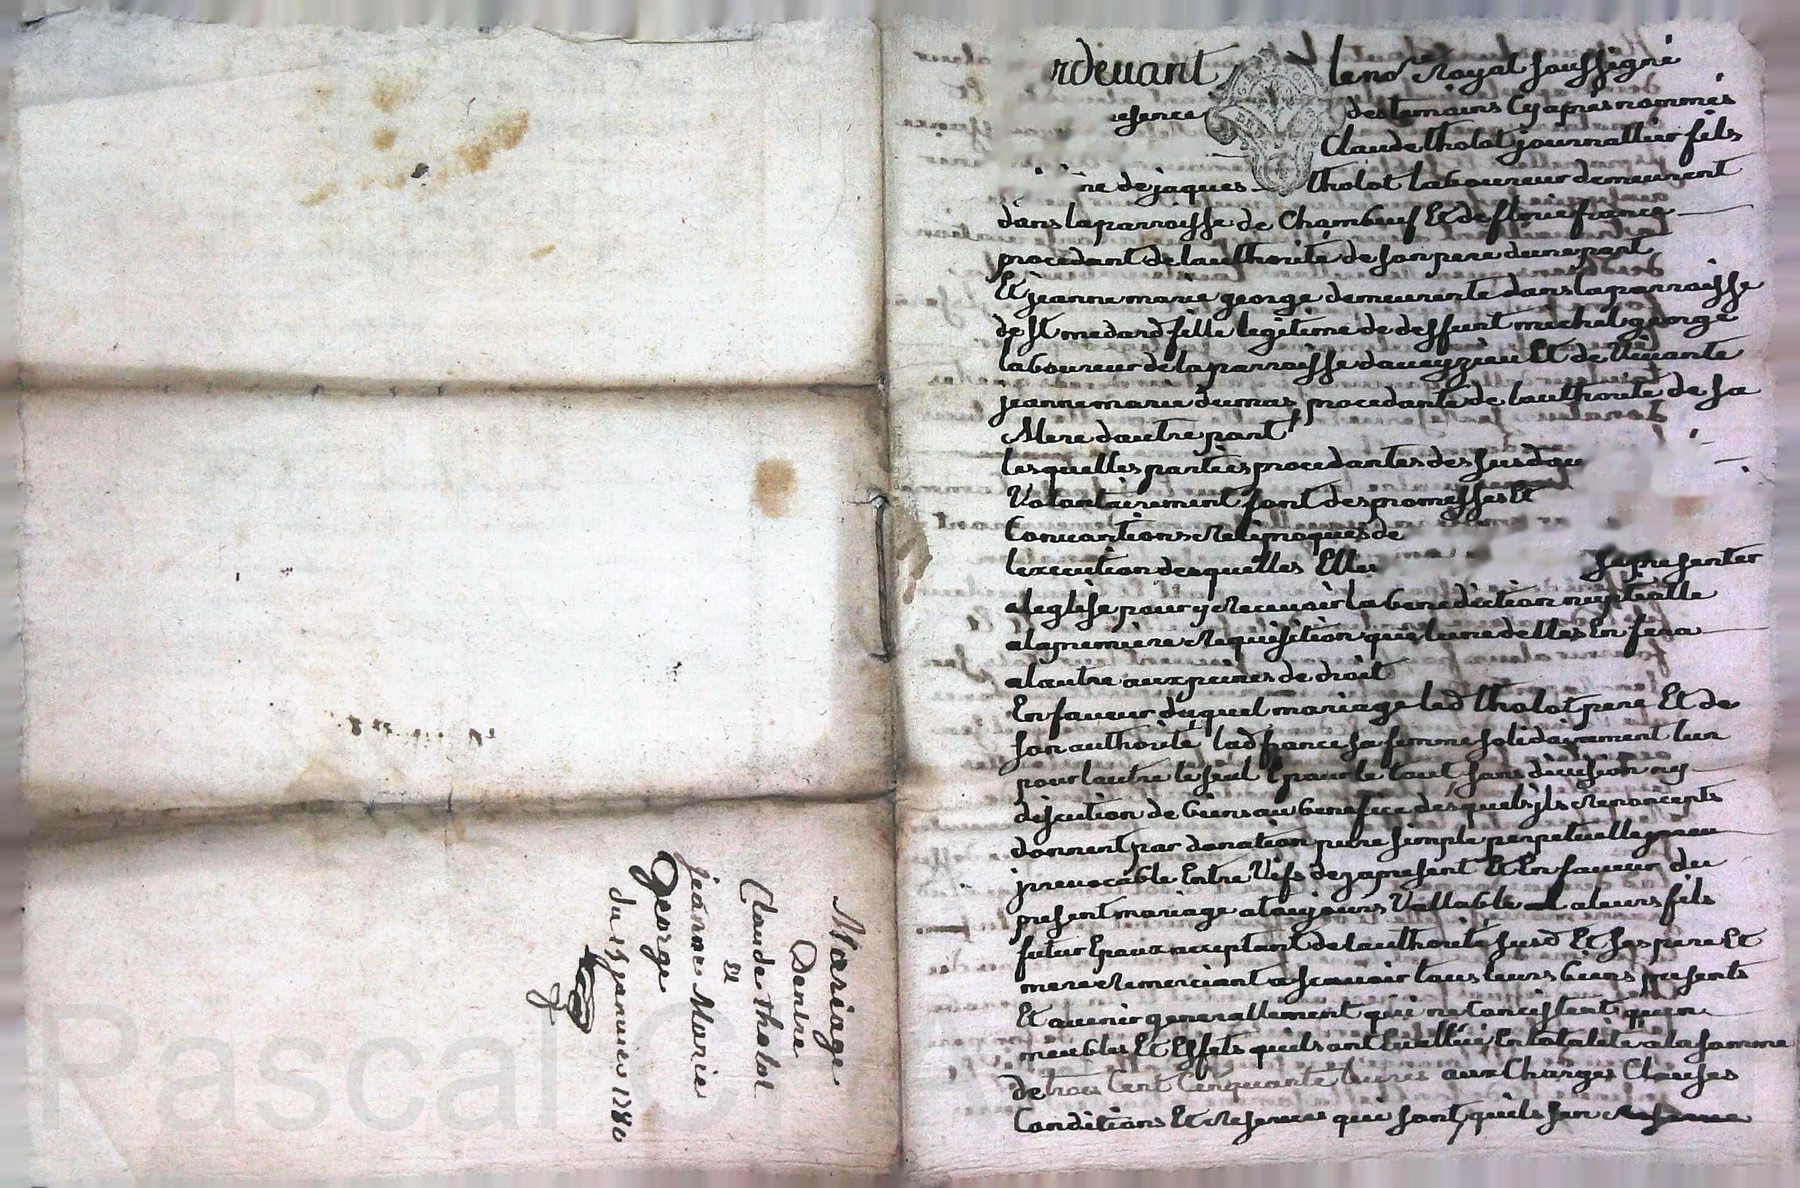 Mariage
Dentre
Claude tholot
et
jeanne Marie
George
du 15 janvier 1780
rdevant le no.re Royal soussigné
esence des temoins Cyapres nommés
Claude tholot journallier fils
me de jaques tholot laboureur demeurent
dans la parroisse de Chambeuf Et de france
procedant de lauthorité de son pere dune part
Et jeanne marie george demeurente dans la parroisse
de St medard fille legitime de deffunt michel george
laboureur de la parroisse daveyzieu Et de Vivante
jeanne marie dumas procedante de lauthorité de sa
Mere dautre part
les quelles parties procedantes des susd
Volontairement font des promesses Et
Convantions Reciproques de
lexecution desquelles Elle se presenter
a leglise pour y Recevoir la benediction nuptialle
a la premiere Requisition que lune delles En fera
a lautre aux peines de droit
En faveur duquel mariage led tholot pere Et de
son authorité lad france sa femme solidairement lun
pour lautre le seul pour le tout sans division ny
discution de biens au benefice desquels jls Renoncents
donnent par donation pure simple perpetuelle
jrrevocable Entre Vifs deja present Et En faveur du
present mariage a toujours Vallable a leurs fils
futur Epoux acceptant de lauthorité susd Et ses pere Et
mere Remerciant a scavoir tous leurs biens presents
Et avenir generallement qui ne concistent quen
meubles Et Effets quils ont Evallué En totalité a la somme
de trois Cent Cinquante livres aux Charges Clauses
Conditions Et Reserves qui sont quils sen Reserve
Pascal